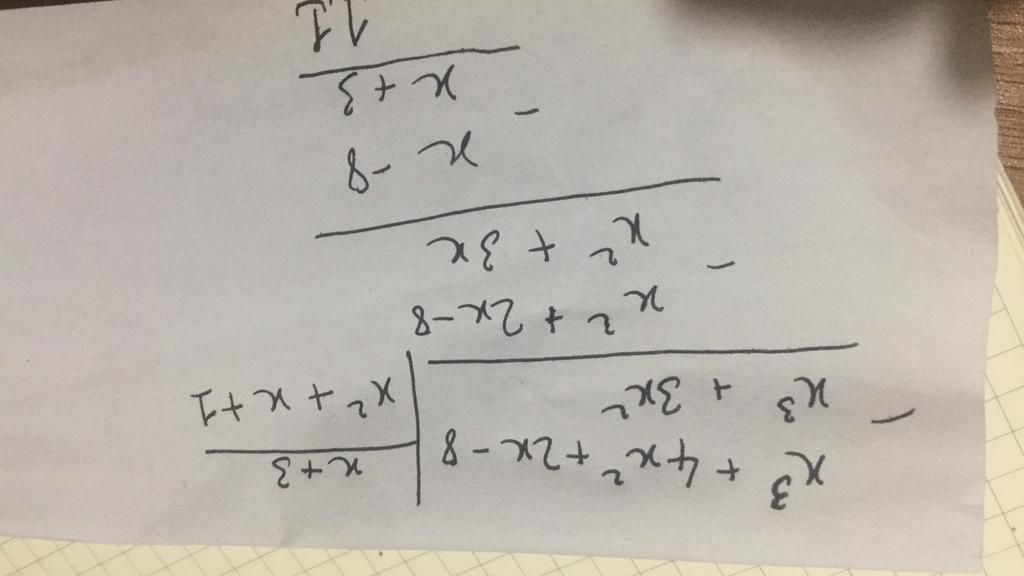 x³ + 4x² + 2x - 8 | x + 3
- x³ + 3x² | x² + x + 1
x² + 2x - 8
- x² + 3x
x - 8
- x + 3
11